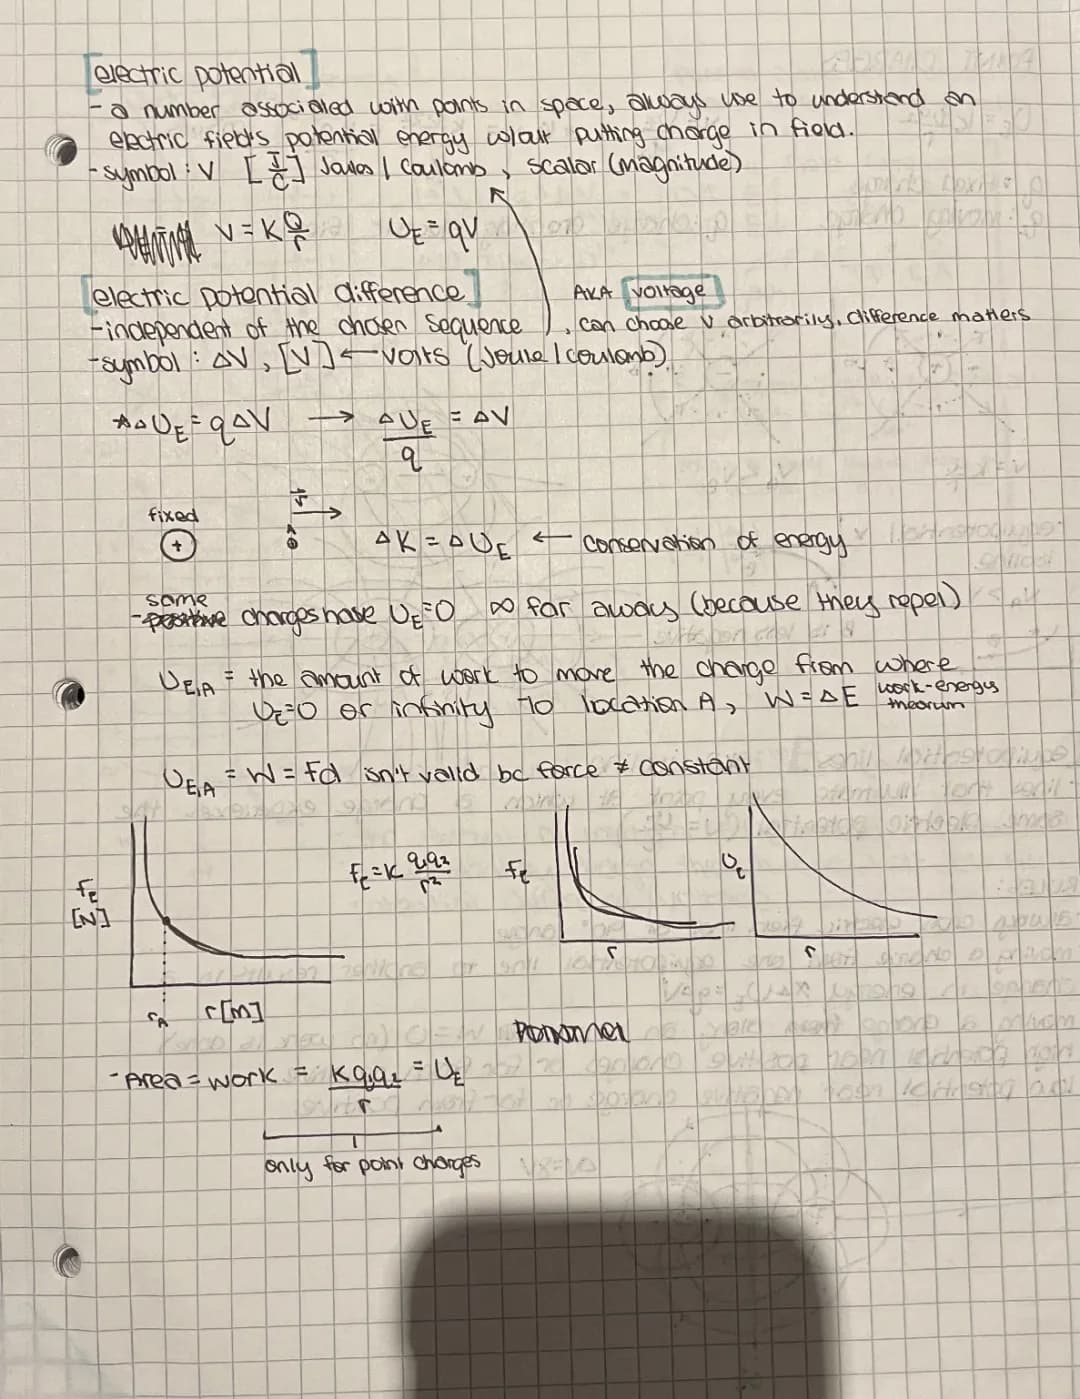 [electric potential]
- a number associated with points in space, always use to understand an
electric field's potential energy w/out putting charge in field.
- symbol : V [J/C] Joules / Coulomb , scalar (magnitude)
V = K Q/r U_E = qV
[electric potential difference] AKA [voltage]
- independent of the chosen sequence , can choose V arbitrarily, difference matters
- symbol : ΔV , [V] ← volts (Joule / coulomb)
ΔU_E = qΔV → ΔU_E/q = ΔV
fixed
+
ΔK = ΔU_E ← conservation of energy
same
- charges have U_E=0 ∞ far away (because they repel)
U_E,A = the amount of work to move the charge from where
U_E=0 or infinity to location A, W = ΔE work-energy
theorum
U_E,A = W = Fd isn't valid bc force ≠ constant
F_E = K q₁q₂/r²
F_E
[N]
F_E
U_E
r
r
r_A
r[m]
- Area = work = Kq₁q₂/r = U_E
only for point charges